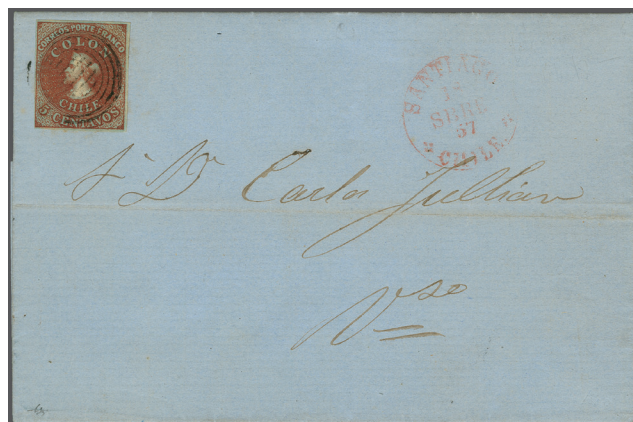 CORREOS PORTE FRANCO
COLON
CHILE
5 CENTAVOS
SANTIAGO
SBRE
57
CHILE
Sr Dn Carlos Jullian
Vso